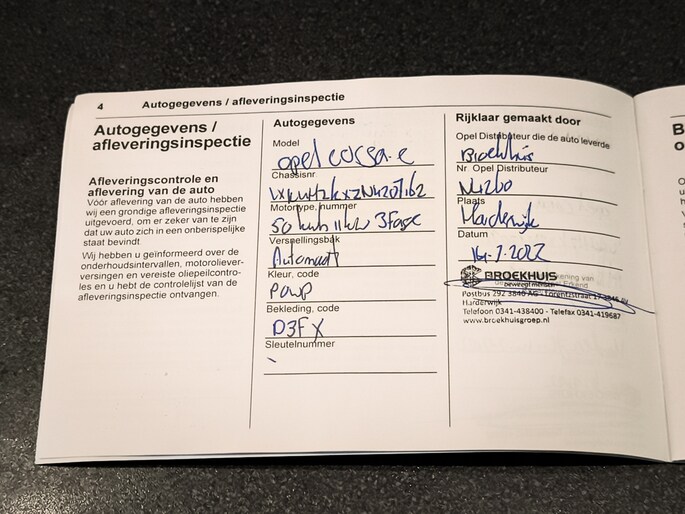 4 Autogegevens / afleveringsinspectie
Autogegevens /
afleveringsinspectie
Afleveringscontrole en
aflevering van de auto
Vóór aflevering van de auto hebben
wij een grondige afleveringsinspectie
uitgevoerd, om er zeker van te zijn
dat uw auto zich in een onberispelijke
staat bevindt
Wij hebben u geïnformeerd over de
onderhoudsintervallen, motoroliever-
versingen en vereiste oliepeilcontro-
les en u hebt de controlelijst van de
afleveringsinspectie ontvangen.
Autogegevens
Model
opel corsa-e
Chassisnr.
Motortype, nummer
50 kwh 11kw 3Fase
Versnellingsbak
Automaat
Kleur, code
Bekleding, code
D3FX
Sleutelnummer
Rijklaar gemaakt door
Opel Distributeur die de auto leverde
Broekhuis
Nr. Opel Distributeur
Plaats
Harderwijk
Datum
2022
BROEKHUIS
beweegt mensen
Postbus 292 3840 AG - Lorentzstraat
Harderwijk
Telefoon 0341-438400 - Telefax 0341-419687
www.broekhuisgroep.nl
B
o